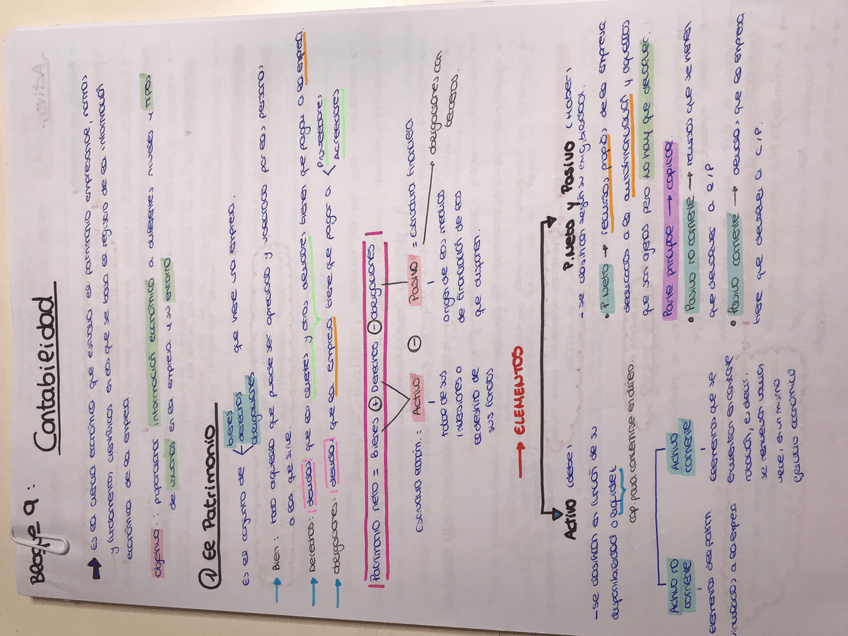 Bloque 9: Contabilidad
Es la ciencia económica que estudia el patrimonio empresarial, normas
y fundamentos científicos en los que se basa el registro de la información
económica de la empresa.
objetivo: proporcionar información económica a diferentes niveles y tipos
de usuarios en la empresa y su exterior
① El Patrimonio
Es el conjunto de
bienes
derechos
obligaciones
que tiene una empresa.
→ Bien: todo aquello que puede ser apreciado y valorado por las personas
a las que sirve.
→ Derechos: deudas que los clientes y otros deudores tienen que pagar a la empresa.
→ obligaciones: deudas que la empresa tiene que pagar a
Proveedores
Acreedores
Patrimonio neto = Bienes + Derechos - obligaciones
Estructura económ. = Activo - Pasivo = estructura financiera
→ obligaciones con
terceros.
total de sus
inversiones o
el destino de
sus fondos
origen de los medios
de financiación de los
que disponen.
→ ELEMENTOS
Activo (debe)
- se clasifican en función de su
disponibilidad o liquidez
cap para convertirse en dinero.
Activo no
corriente
elementos del patrim
vinculados a la empresa
Activo
corriente
elementos que se
encuentran en constante
rotación, es decir,
se renuevan varias
veces en un mismo
ejercicio económico
P. Neto y Pasivo (Haber)
- se clasifican según su exigibilidad.
• P. Neto → recursos propios de la empresa
dedicados a la autofinanciación y aquellos
que son ajenos pero no hay que devolver.
Parte principal → capital
• Pasivo no corriente → recursos que se tienen
que devolver a L/P
• Pasivo corriente → deudas que la empresa
tiene que devolver a C/P.